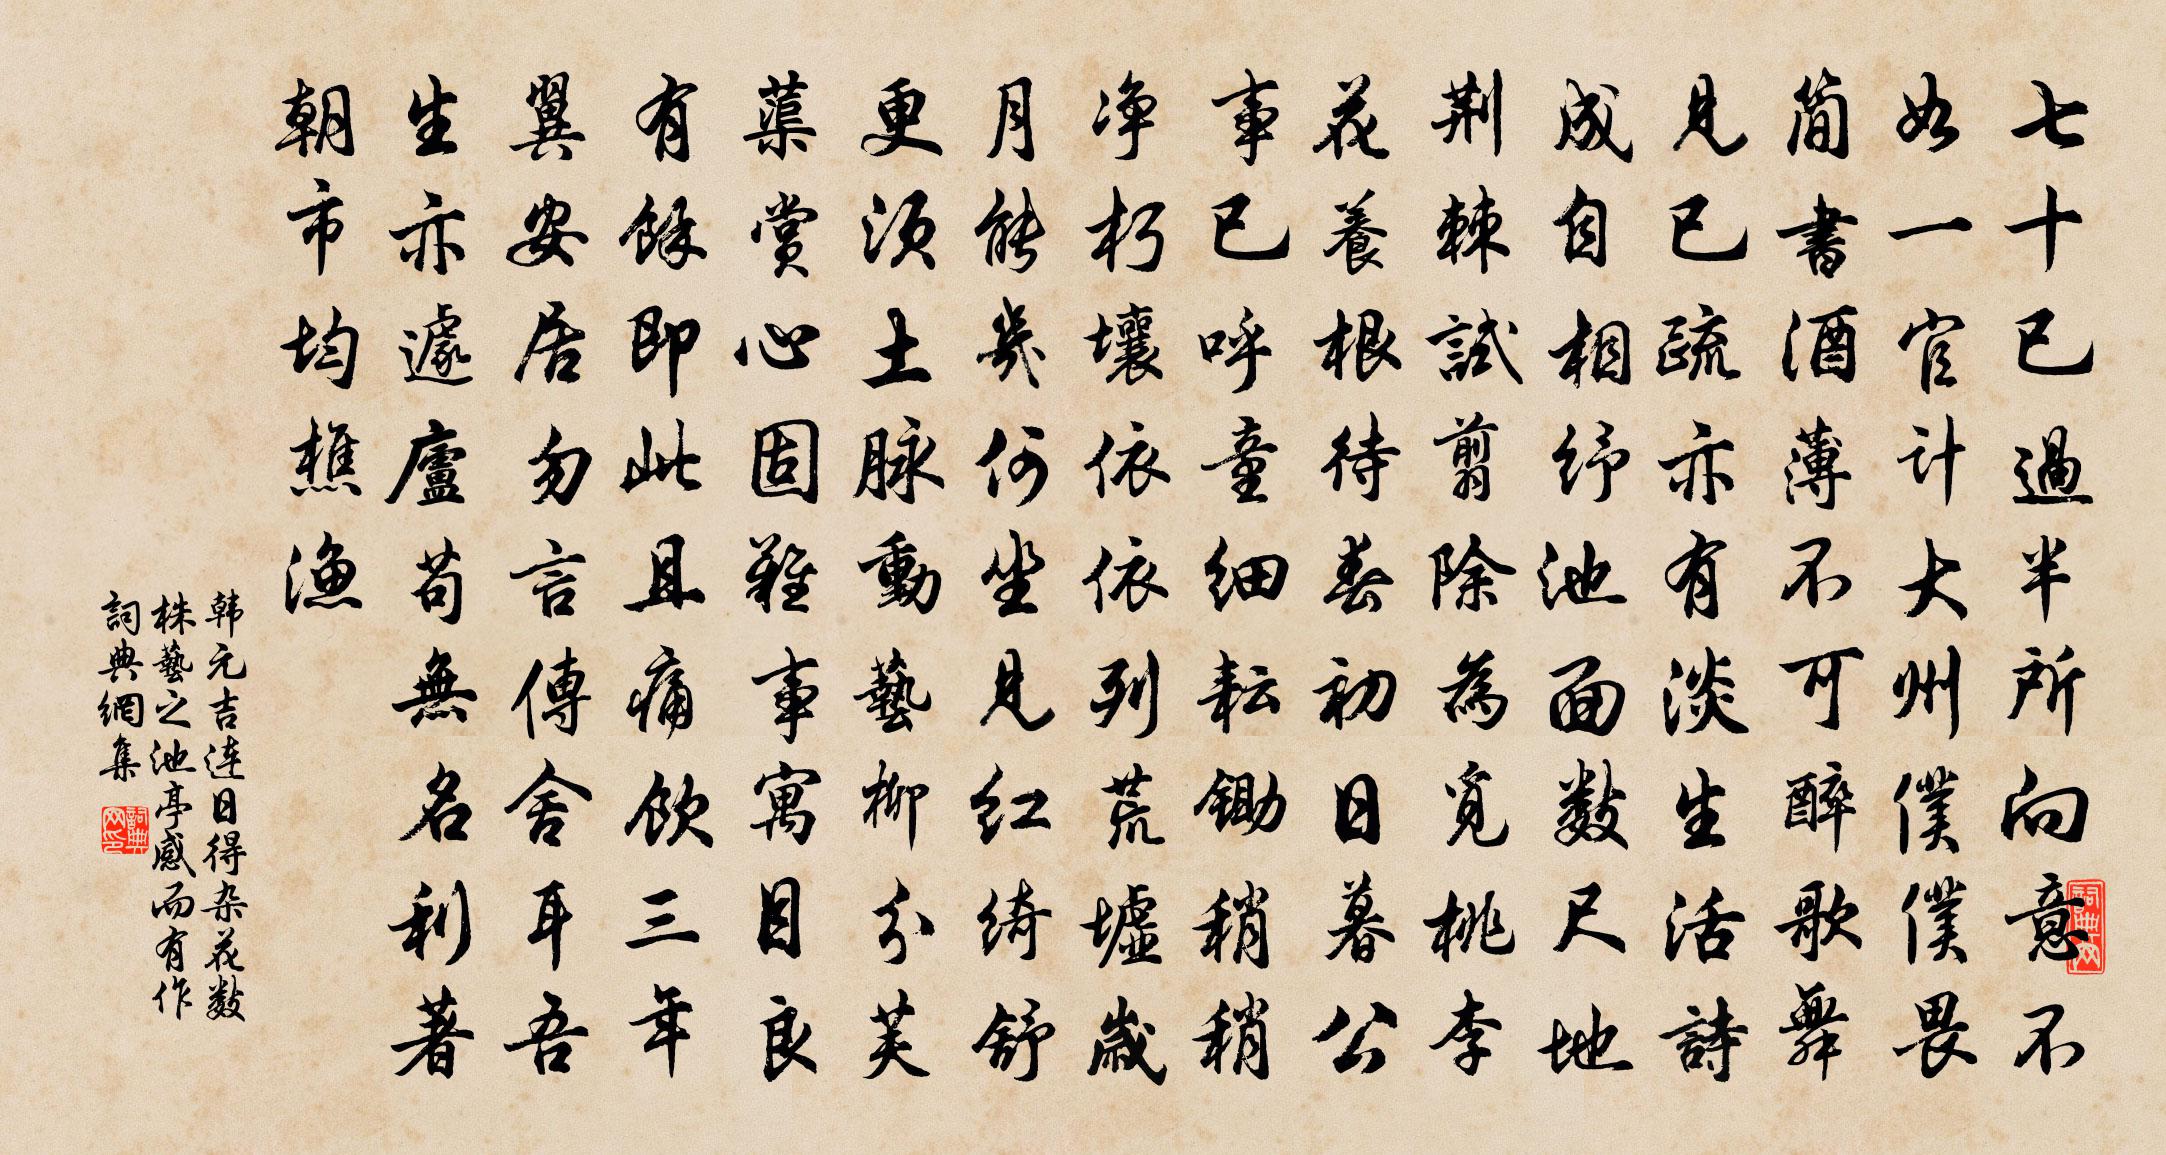 七十已過半所向意不
如一官计大州僕僕畏
简書酒薄不可醉歌舞
見已疏亦有淡生活詩
成自相纾池面数尺地
荆棘試剪除為覓桃李
花養根待春初日暮公
事已呼童细耘鋤稍稍
净朽壤依依列荒墟歲
月能幾何坐見红绮舒
更须土脉動藝柳分芙
蕖賞心固難事寓目良
有餘即此且痛飲三年
翼安居勿言傳舍耳吾
生亦遽廬苟無名利著
朝市均樵漁
韩元吉连日得杂花数
株藝之池亭感而有作
詞典網集
詞典网
詞典网印